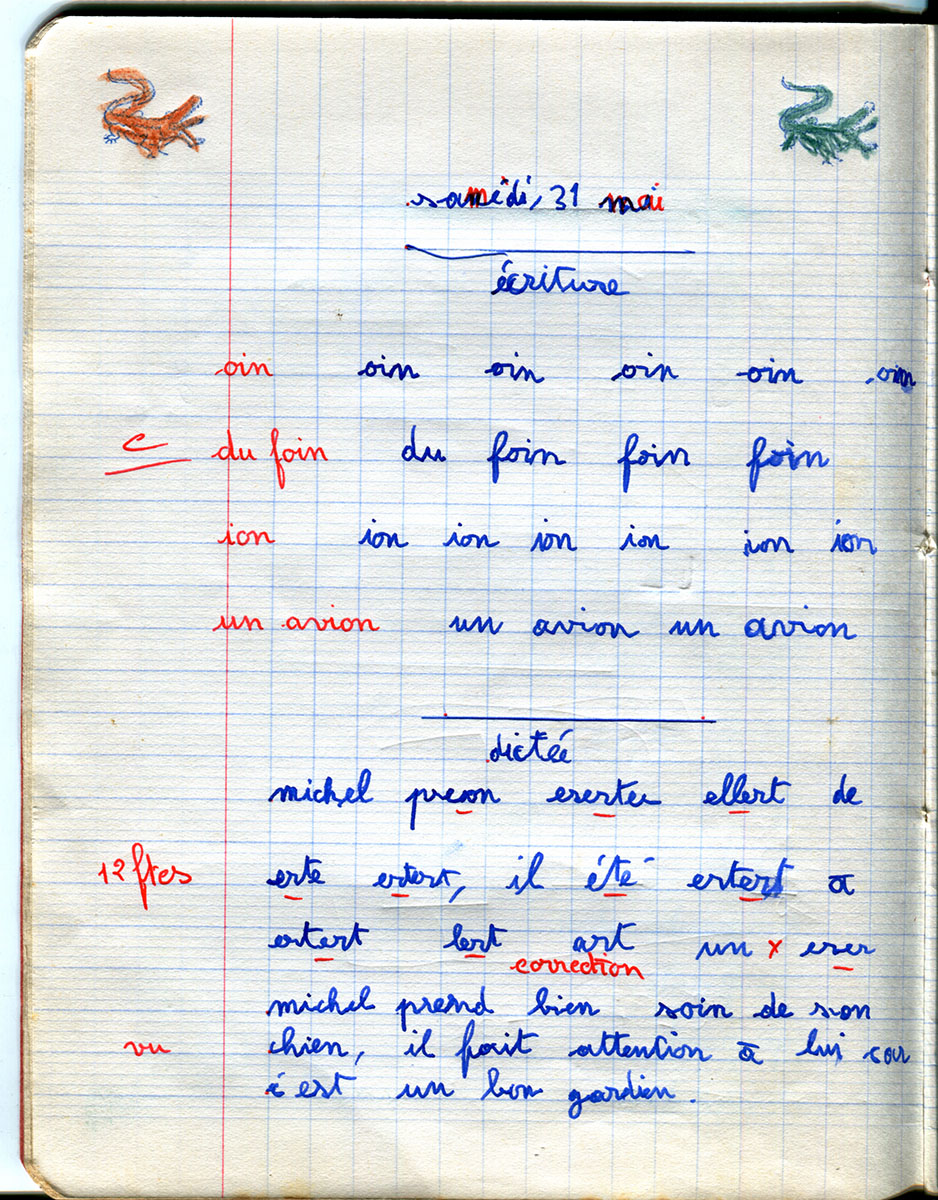 samedi, 31 mai
écriture
oin oin oin oin oin oin
c du foin du foin foin foin
ion ion ion ion ion ion ion
un avion un avion un avion
dictée
michel preson ererter ellert de
12 ftes erte estert, il été estert à
estert lert art un x erer
correction
michel prend bien soin de son
vu chien, il fait attention à lui car
c'est un bon gardien.